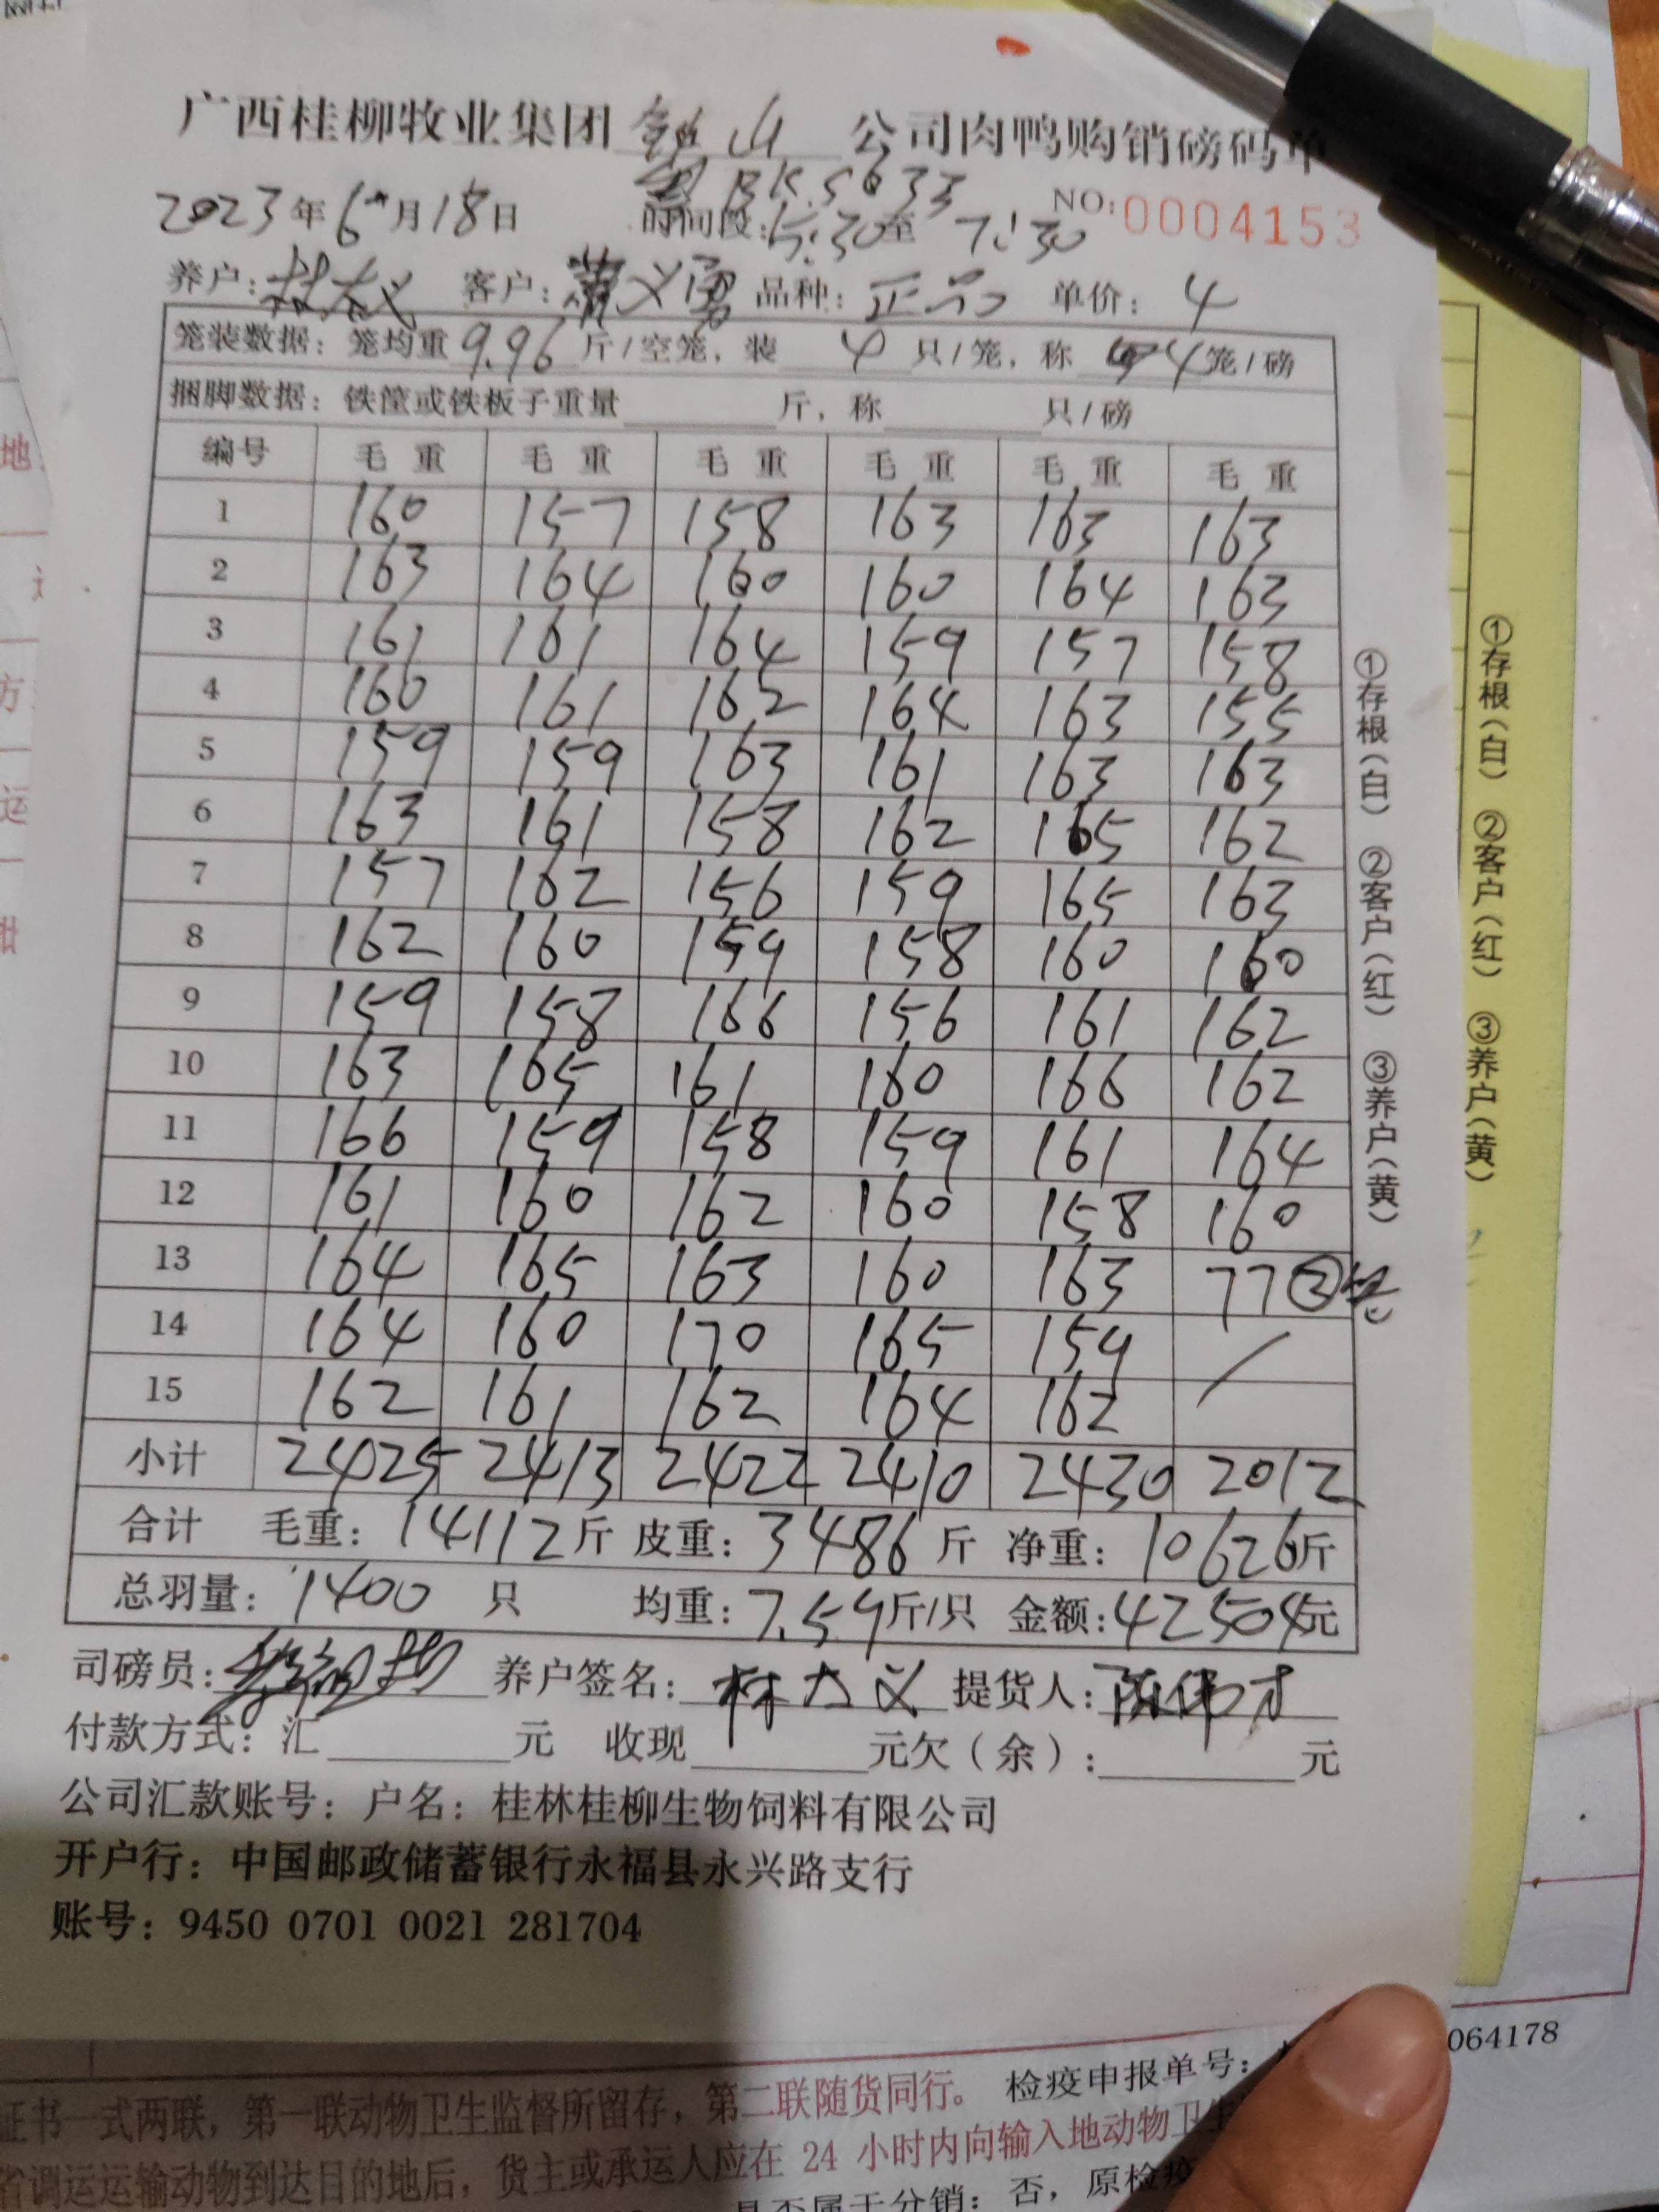 广西桂柳牧业集团 山 公司肉鸭购销磅码单
BKS633
2023年6月18日 时间段:5:30至7:30 NO:0004153
养户:林大义 客户:萧义勇 品种:正品 单价:4
笼装数据:笼均重9.96斤/空笼,装4只/笼,称4笼/磅
捆脚数据:铁筐或铁板子重量____斤,称____只/磅
编号 毛重 毛重 毛重 毛重 毛重 毛重
1 160 157 158 163 163 163
2 163 164 160 160 164 163
3 161 161 164 159 157 158
4 160 161 162 164 163 155
5 159 159 163 161 163 163
6 163 161 158 162 165 162
7 157 162 156 159 165 163
8 162 160 159 158 160 160
9 159 158 166 156 161 162
10 163 165 161 160 166 162
11 166 159 158 159 161 164
12 161 160 162 160 158 160
13 164 165 163 160 163 77②笼
14 164 160 170 165 159 /
15 162 161 162 164 162
小计 2425 2413 2422 2410 2430 2012
合计 毛重:14112斤 皮重:3486斤 净重:10626斤
总羽量:1400只 均重:7.59斤/只 金额:42504元
司磅员: 养户签名:林大义 提货人:
付款方式:汇____元 收现____元欠(余):____元
公司汇款账号:户名:桂林桂柳生物饲料有限公司
开户行:中国邮政储蓄银行永福县永兴路支行
账号:9450 0701 0021 281704
①存根(白) ②客户(红) ③养户(黄)
①存根(白) ②客户(红) ③养户(黄)
检疫申报单号: 064178
证书一式两联,第一联动物卫生监督所留存,第二联随货同行。
省调运运输动物到达目的地后,货主或承运人应在 24 小时内向输入地动物卫生
是否属于分销:否,原检疫